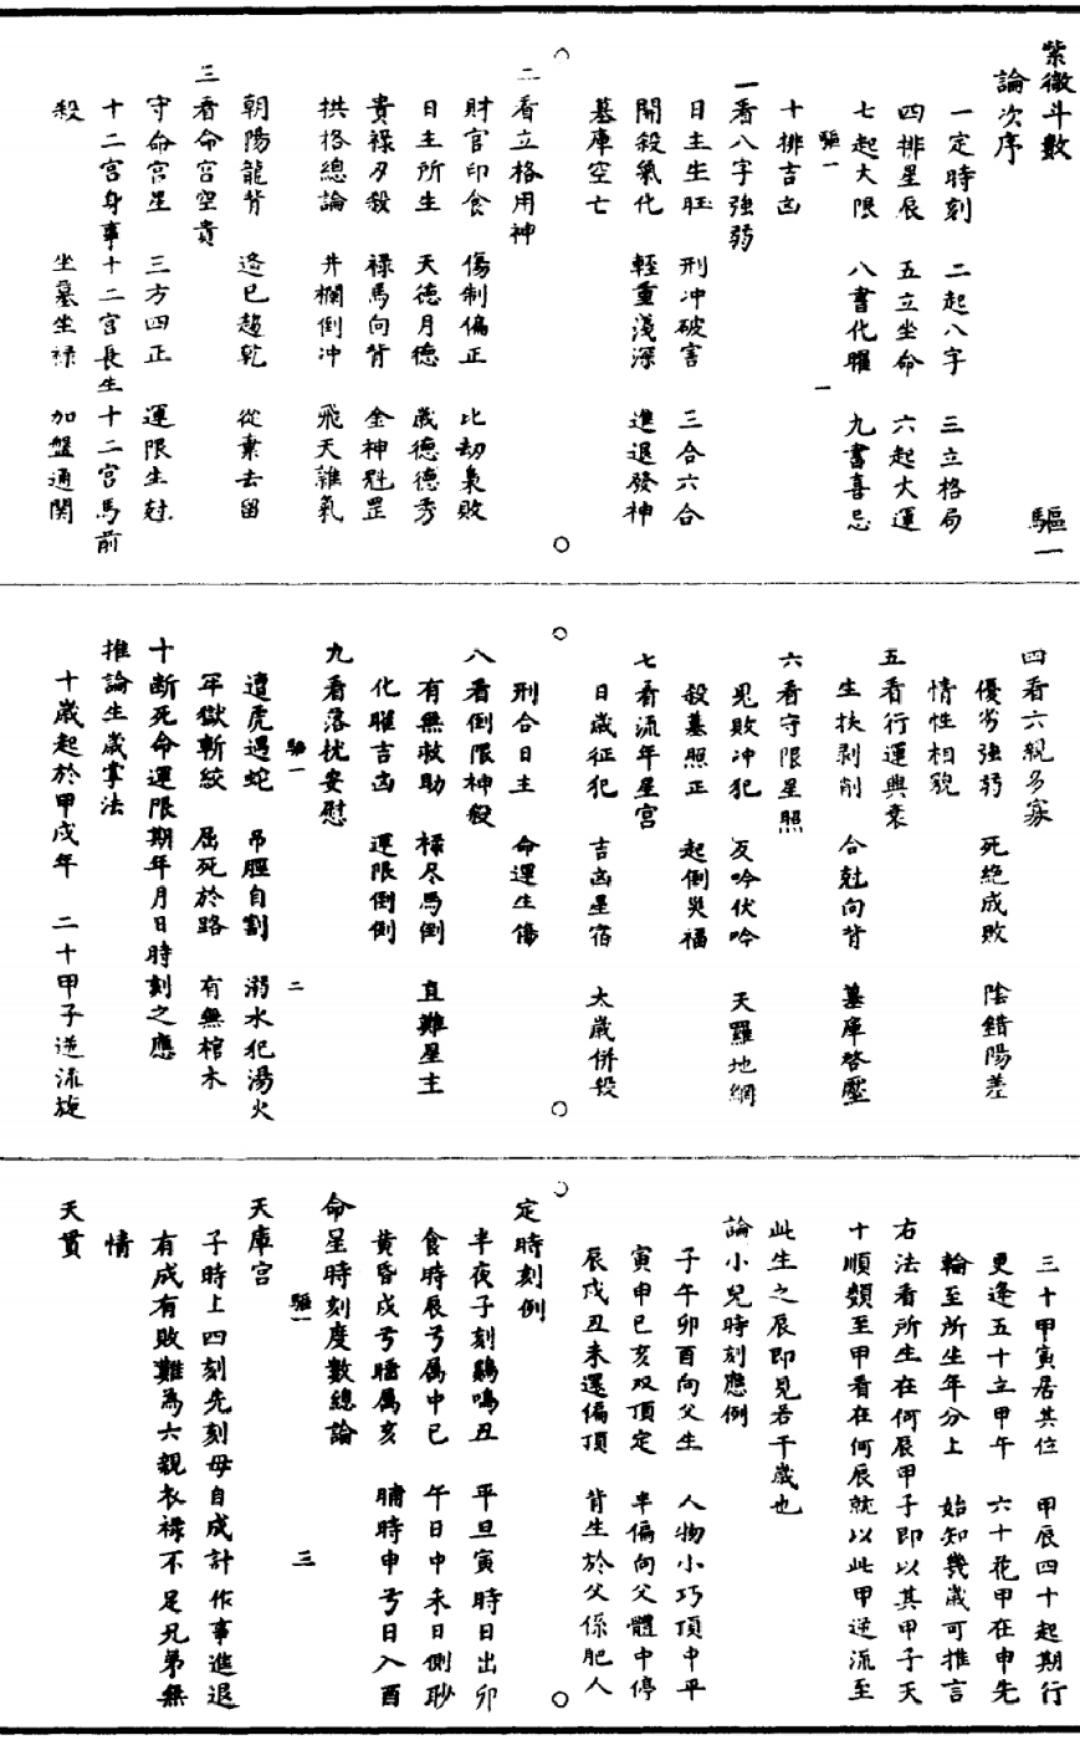 紫微斗數　驅一
論次序
一定時刻　二起八字　三立格局
四排星辰　五立坐命　六起大運
七起大限　八書化曜　九書喜忌
驅一　一
十排吉凶
一看八字強弱
日主生旺　刑冲破害　三合六合
開殺氣化　輕重淺深　進退發神
墓庫空亡
二看立格用神
財官印食　傷制偏正　比劫梟敗
日主所生　天德月德　歲德德秀
貴祿刃殺　祿馬向背　金神魁罡
拱格總論　井欄倒冲　飛天雜氣
朝陽龍背　逄巳趨乾　從棄去留
三看命宮空貴
守命宮星　三方四正　運限生尅
十二宮身事十二宮長生十二宮馬前
殺　坐墓坐祿　加盤通関
四看六親多寡
優劣強弱　死絕成敗　陰錯陽差
情性相貌
五看行運興衰
生扶剥削　合尅向背　墓庫啓壓
六看守限星照
見敗冲犯　反吟伏吟　天羅地綱
殺墓照正　起倒災福
七看流年星宮
日歲征犯　吉凶星宿　太歲併殺
刑合日主　命運生傷
八看倒限神殺
有無救助　祿尽馬倒　直難星主
化曜吉凶　運限倒倒
九看落枕安慰
遭虎遇蛇　吊脛自割　溺水犯湯火
驅一　二
牢獄斬絞　屈死於路　有無棺木
十断死命運限期年月日時刻之應
推論生歲掌法
十歲起於甲戌年　二十甲子逆流旋
三十甲寅居其位　甲辰四十起期行
更逢五十立甲午　六十花甲在申先
輪至所生年分上　始知幾歲可推言
右法看所生在何辰甲子即以其甲子天
十順類至甲看在何辰就以此甲逆流至
此生之辰即見若干歲也
論小兒時刻應例
子午卯酉向父生　人物小巧頂中平
寅申巳亥双頂定　半偏向父體中停
辰戌丑未還偏頂　背生於父係肥人
定時刻例
半夜子刻鷄鳴丑　平旦寅時日出卯
食時辰兮属中巳　午日中未日側耖
黄昏戌兮晤属亥　晡時申兮日入酉
命星時刻度數總論
驅一　三
天庫宮
子時上四刻先刻母自成計作事進退
有成有敗難為六親衣祿不足兄弟無
情
天貫